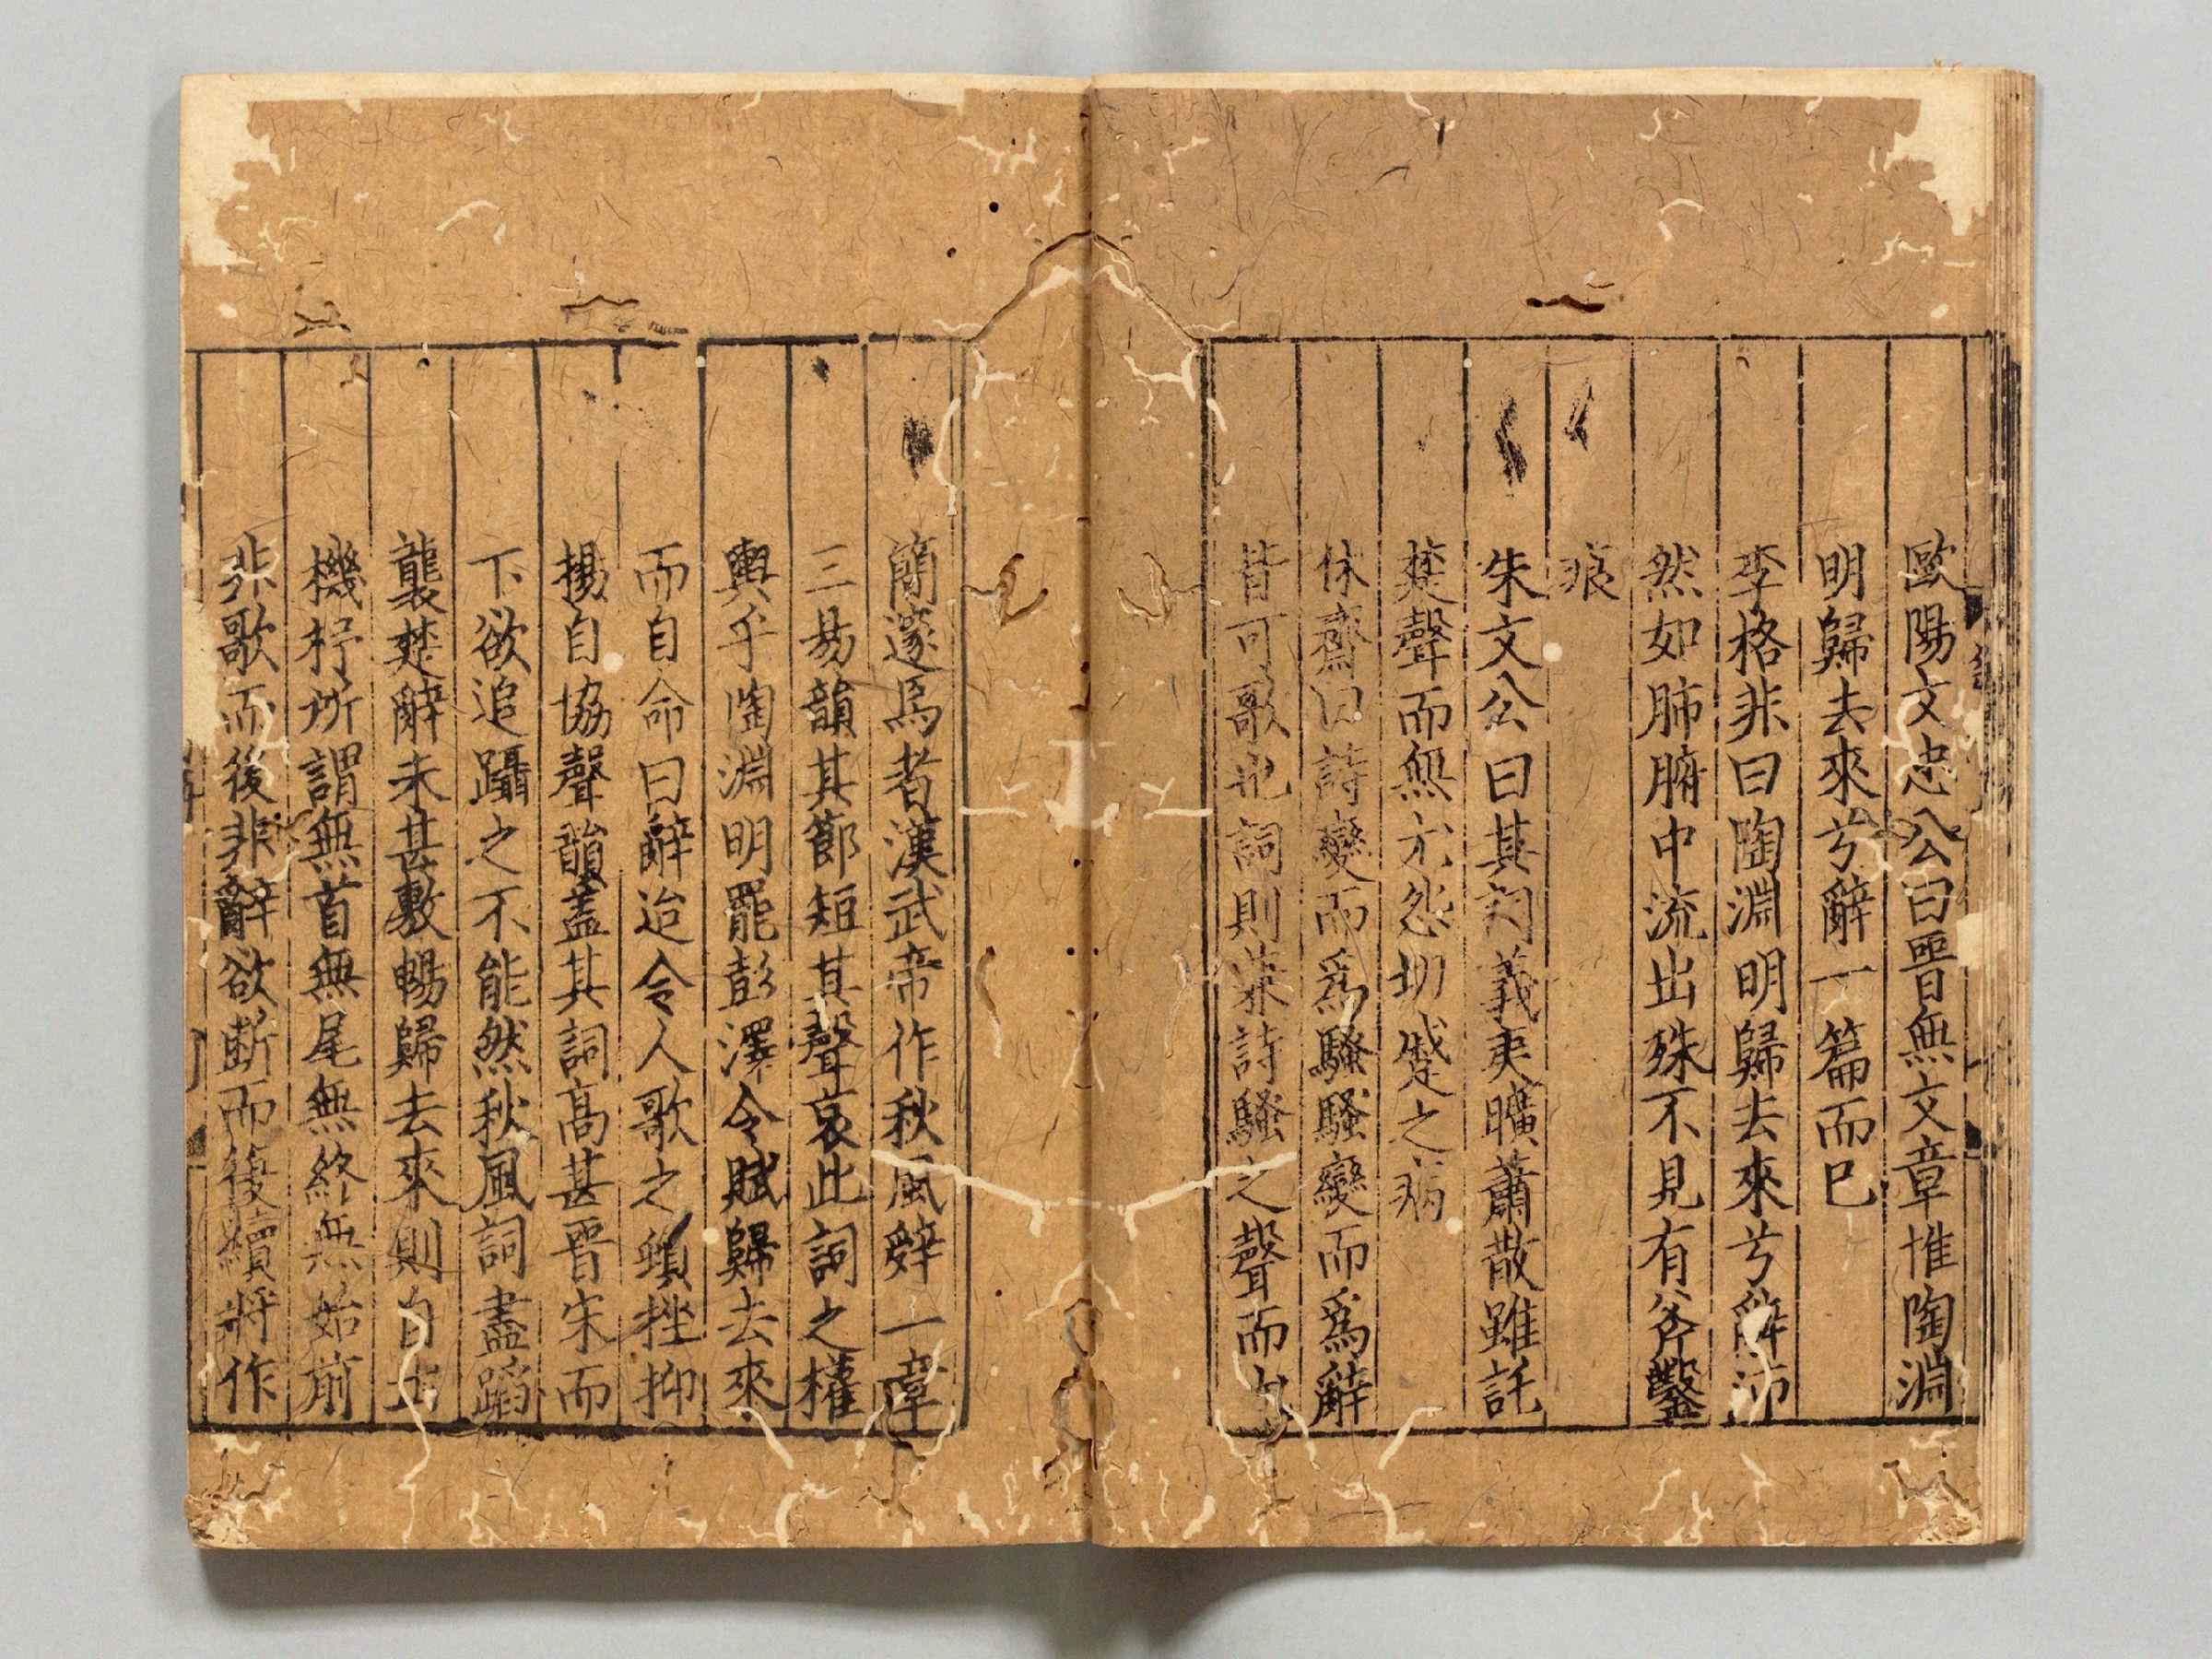 歐陽文忠公曰晉無文章惟陶淵
明歸去來兮辭一篇而已
李格非曰陶淵明歸去來兮辭沛
然如肺腑中流出殊不見有斧鑿
痕
朱文公曰其詞義夷曠蕭散雖託
楚聲而無尤怨切蹙之病
休齋曰詩變而爲騷騷變而爲辭
皆可歌也詞則兼詩騷之聲而尤
簡邃焉者漢武帝作秋風辭一章
三易韻其節短其聲哀此詞之權
輿乎陶淵明罷彭澤令賦歸去來
而自命曰辭迨令人歌之頓挫抑
揚自協聲韻蓋其詞高甚晉宋而
下欲追躡之不能然秋風詞盡蹈
襲楚辭未甚敷暢歸去來則自出
機杼所謂無首無尾無終無始前
非歌而後非辭欲斷而復續將作